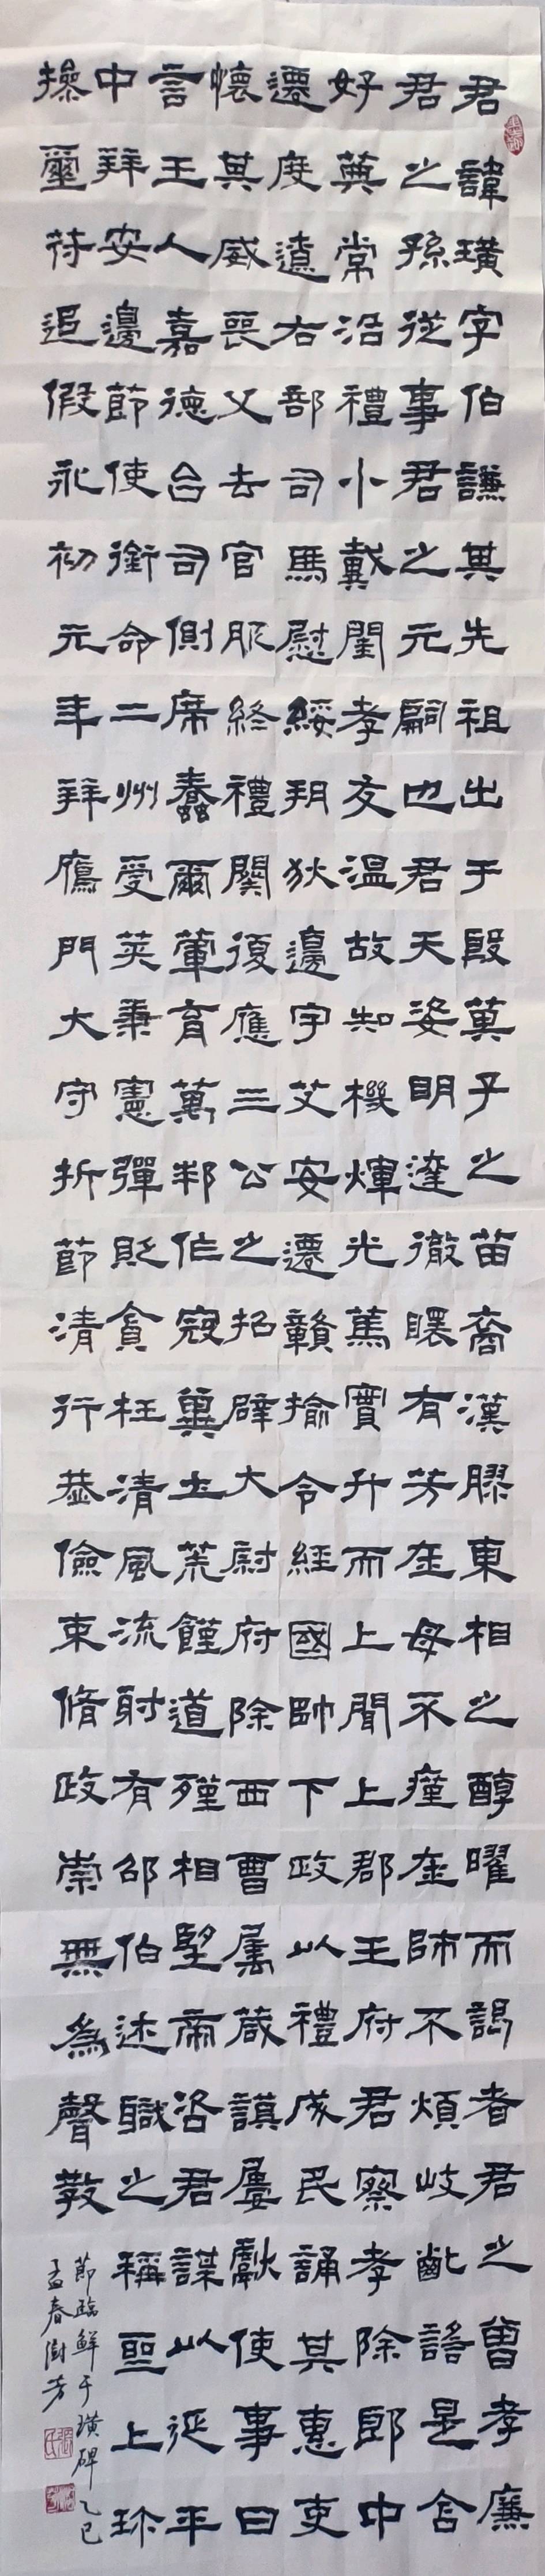 君諱璜字伯謙其先祖出于殷箕子之苗裔漢膠東相之醇曜而謁者君之曾孝廉
君之孫從事君之元嗣也君天姿明達徹曒有芳在母不瘇在師不煩岐齔謠是含
好葬常沿禮小戴閨孝友溫故知機煇光篤實升而上聞上郡王府君察孝除郎中
遷度遼右部司馬慰綏朔狄邊宇艾安遷贛揄令經國帥下政以禮成民誦其惠吏
懷其威喪父去官服終禮闋復應三公之招辟大尉府除西曹屬葴謨屢獻使事日
言王人嘉德台司側席蠢爾葷育萬邦作寇冀土荒饉道殣相望帝咨君謀以延平
中拜安邊節使銜命二州受莢秉憲彈貶貪枉清風流射有邵伯述職之稱聖上珎
操璽符追假永初元年拜鴈門大守折節清行恭儉束脩政崇無為聲教
節臨鮮于璜碑乙巳
孟春樹芳